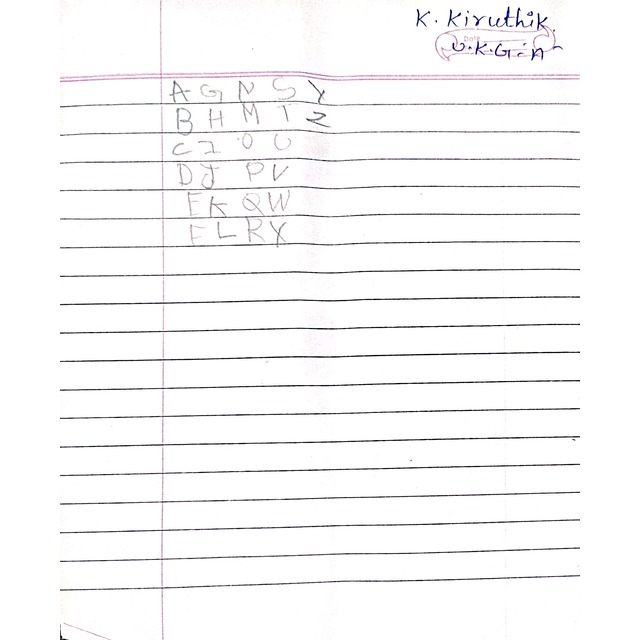 K. Kiruthik.
Date
U.K.G - A
A G N S Y
B H M T Z
C I O U
D J P V
E K Q W
F L R X